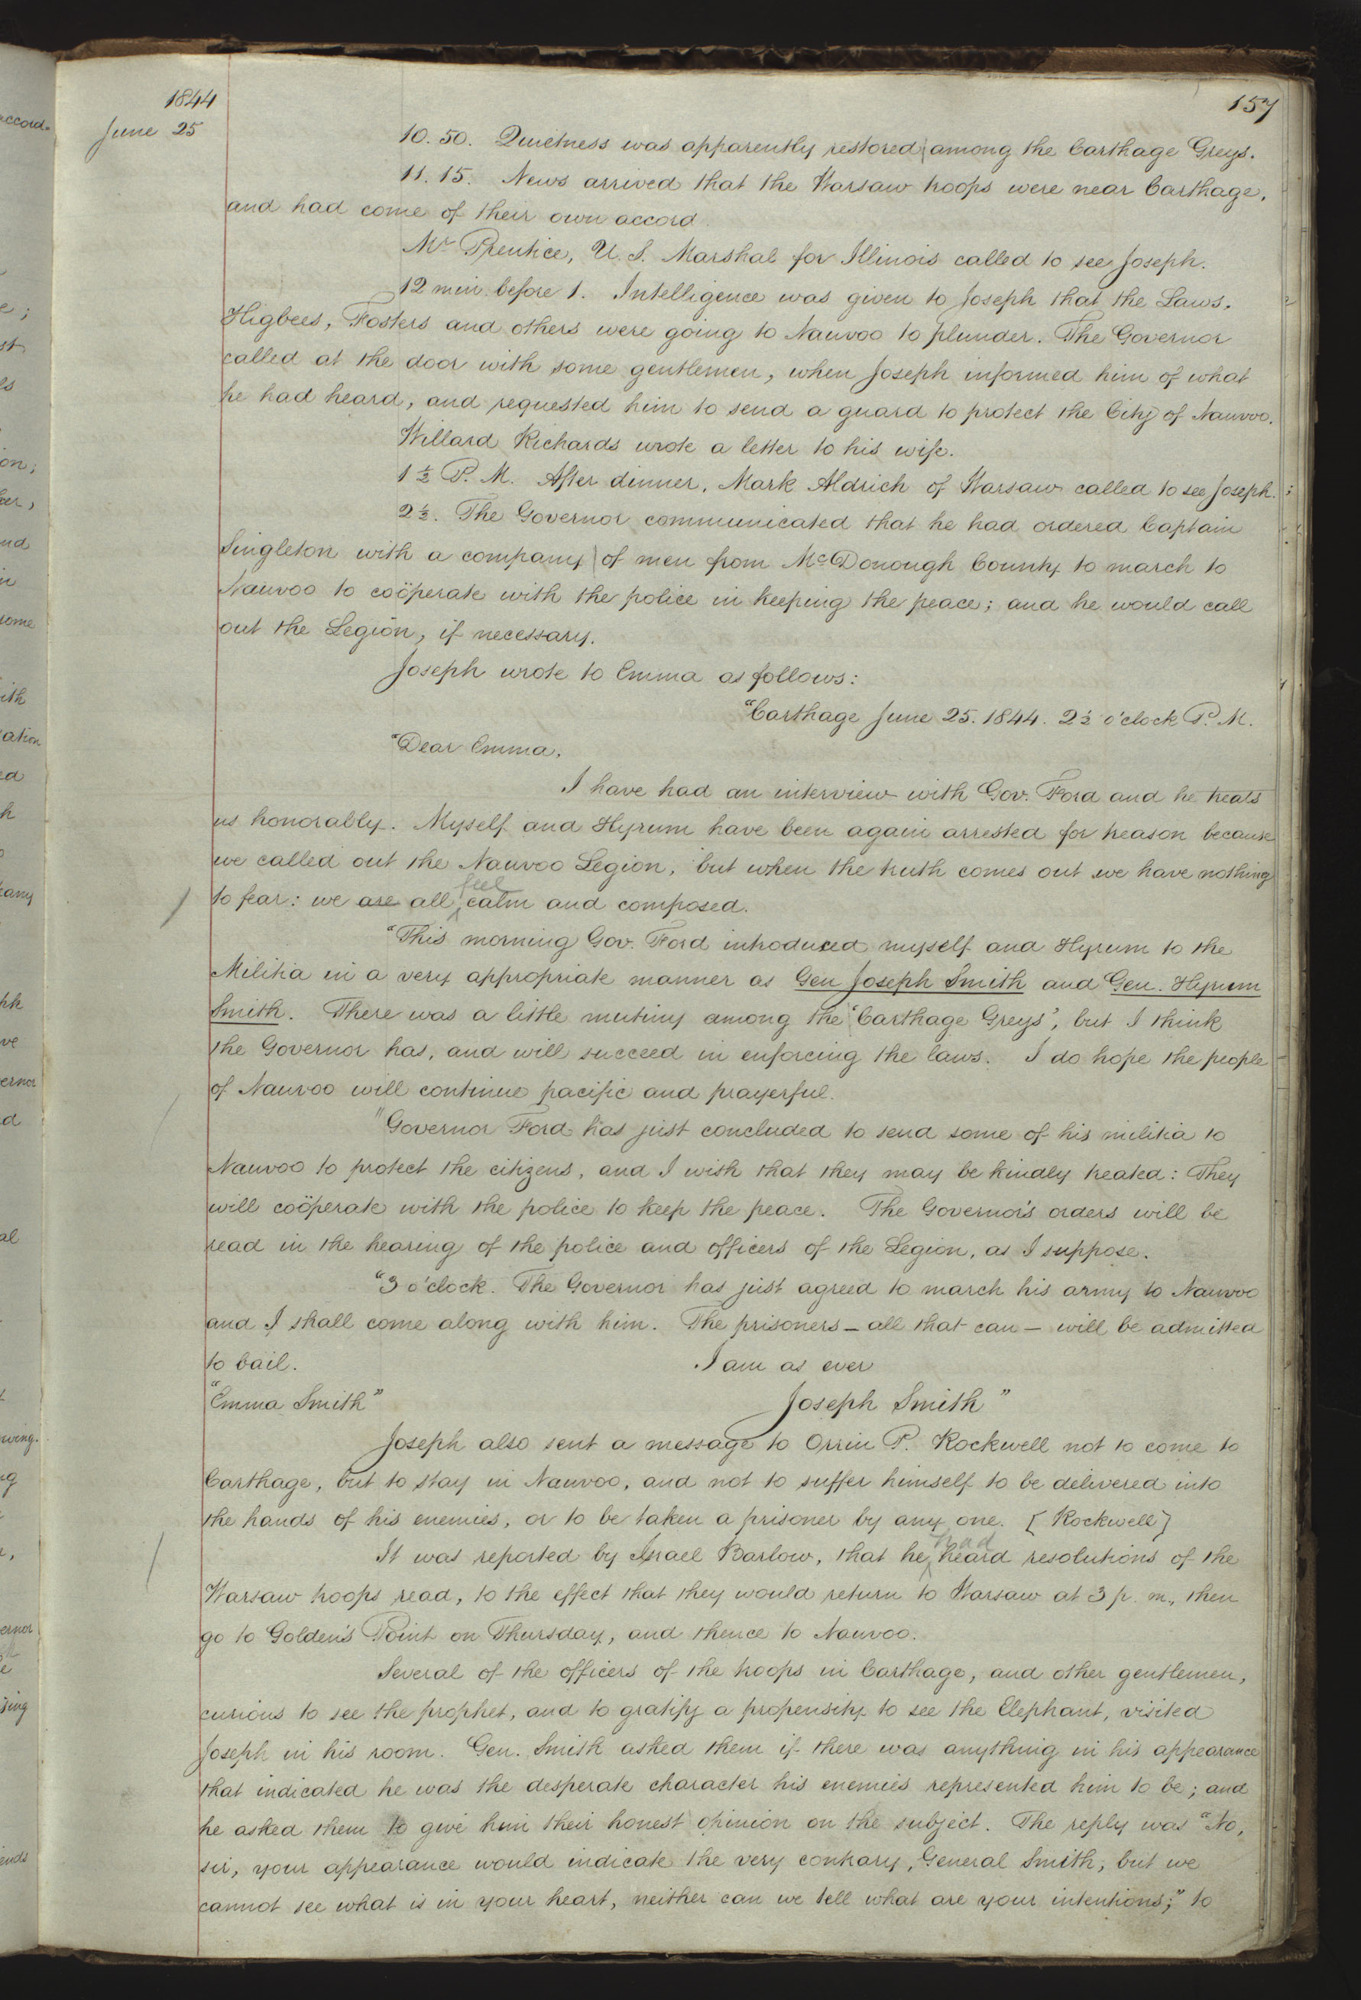 1844
157
June 25
10.50. Quietness was apparently restored among the Carthage Greys.
11.15. News arrived that the Warsaw troops were near Carthage,
and had come of their own accord.
Mr Prentice, U.S. Marshal for Illinois called to see Joseph.
12 min. before 1. Intelligence was given to Joseph that the Laws,
Higbees, Fosters and others were going to Nauvoo to plunder. The Governor
called at the door with some gentlemen, when Joseph informed him of what
he had heard, and requested him to send a guard to protect the City of Nauvoo.
Willard Richards wrote a letter to his wife.
1½ P.M. After dinner, Mark Aldrich of Warsaw called to see Joseph.
2½. The Governor communicated that he had ordered Captain
Singleton with a company of men from McDonough County to march to
Nauvoo to coöperate with the police in keeping the peace; and he would call
out the Legion, if necessary.
Joseph wrote to Emma as follows:
"Carthage June 25. 1844. 2½ o'clock P.M.
"Dear Emma,
I have had an interview with Gov. Ford and he treats
us honorably. Myself and Hyrum have been again arrested for treason because
we called out the Nauvoo Legion, but when the truth comes out we have nothing
feel
to fear: we are all ^ calm and composed.
"This morning Gov. Ford introduced myself and Hyrum to the
Militia in a very appropriate manner as Gen Joseph Smith and Gen. Hyrum
Smith. There was a little mutiny among the "Carthage Greys", but I think
the Governor has, and will succeed in enforcing the laws. I do hope the people
of Nauvoo will continue pacific and prayerful.
"Governor Ford has just concluded to send some of his militia to
Nauvoo to protect the citizens, and I wish that they may be kindly treated: They
will coöperate with the police to keep the peace. The Governor's orders will be
read in the hearing of the police and officers of the Legion, as I suppose.
"3 o'clock. The Governor has just agreed to march his army to Nauvoo
and I shall come along with him. The prisoners – all that can – will be admitted
to bail. I am as ever
"Emma Smith" Joseph Smith"
Joseph also sent a message to Orrin P. Rockwell not to come to
Carthage, but to stay in Nauvoo, and not to suffer himself to be delivered into
the hands of his enemies, or to be taken a prisoner by any one. [Rockwell]
had
It was reported by Israel Barlow, that he ^ heard resolutions of the
Warsaw troops read, to the effect that they would return to Warsaw at 3 p.m., then
go to Golden's Point on Thursday, and thence to Nauvoo.
Several of the officers of the troops in Carthage, and other gentlemen,
curious to see the prophet, and to gratify a propensity to see the Elephant, visited
Joseph in his room. Gen. Smith asked them if there was anything in his appearance
that indicated he was the desperate character his enemies represented him to be; and
he asked them to give him their honest opinion on the subject. The reply was "No,
sir, your appearance would indicate the very contrary, General Smith; but we
cannot see what is in your heart, neither can we tell what are your intentions;" to